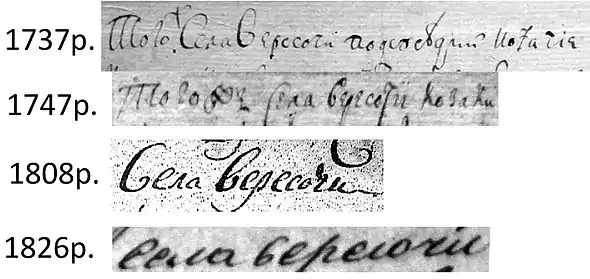 1737р. Того Села Вересочи подсосѣдки козачіе
1747р. Тогожъ села вересочи козаки
1808р. Села Вересочи
1826р. села вересочи